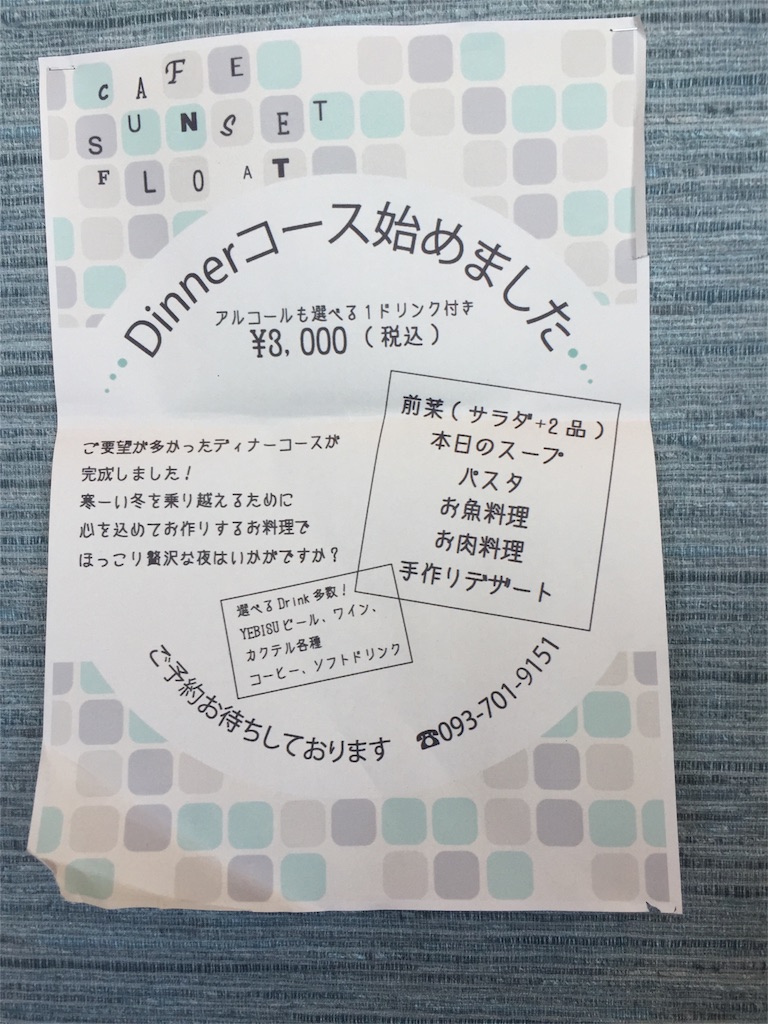 CAFE
SUNSET
FLOAT
Dinnerコース始めました
アルコールも選べる1ドリンク付き
¥3,000（税込）
前菜（サラダ+2品）
本日のスープ
パスタ
お魚料理
お肉料理
手作りデザート
ご要望が多かったディナーコースが
完成しました！
寒ーい冬を乗り越えるために
心を込めてお作りするお料理で
ほっこり贅沢な夜はいかがですか？
選べるDrink多数！
YEBISUビール、ワイン、
カクテル各種
コーヒー、ソフトドリンク
ご予約お待ちしております ☎093-701-9151